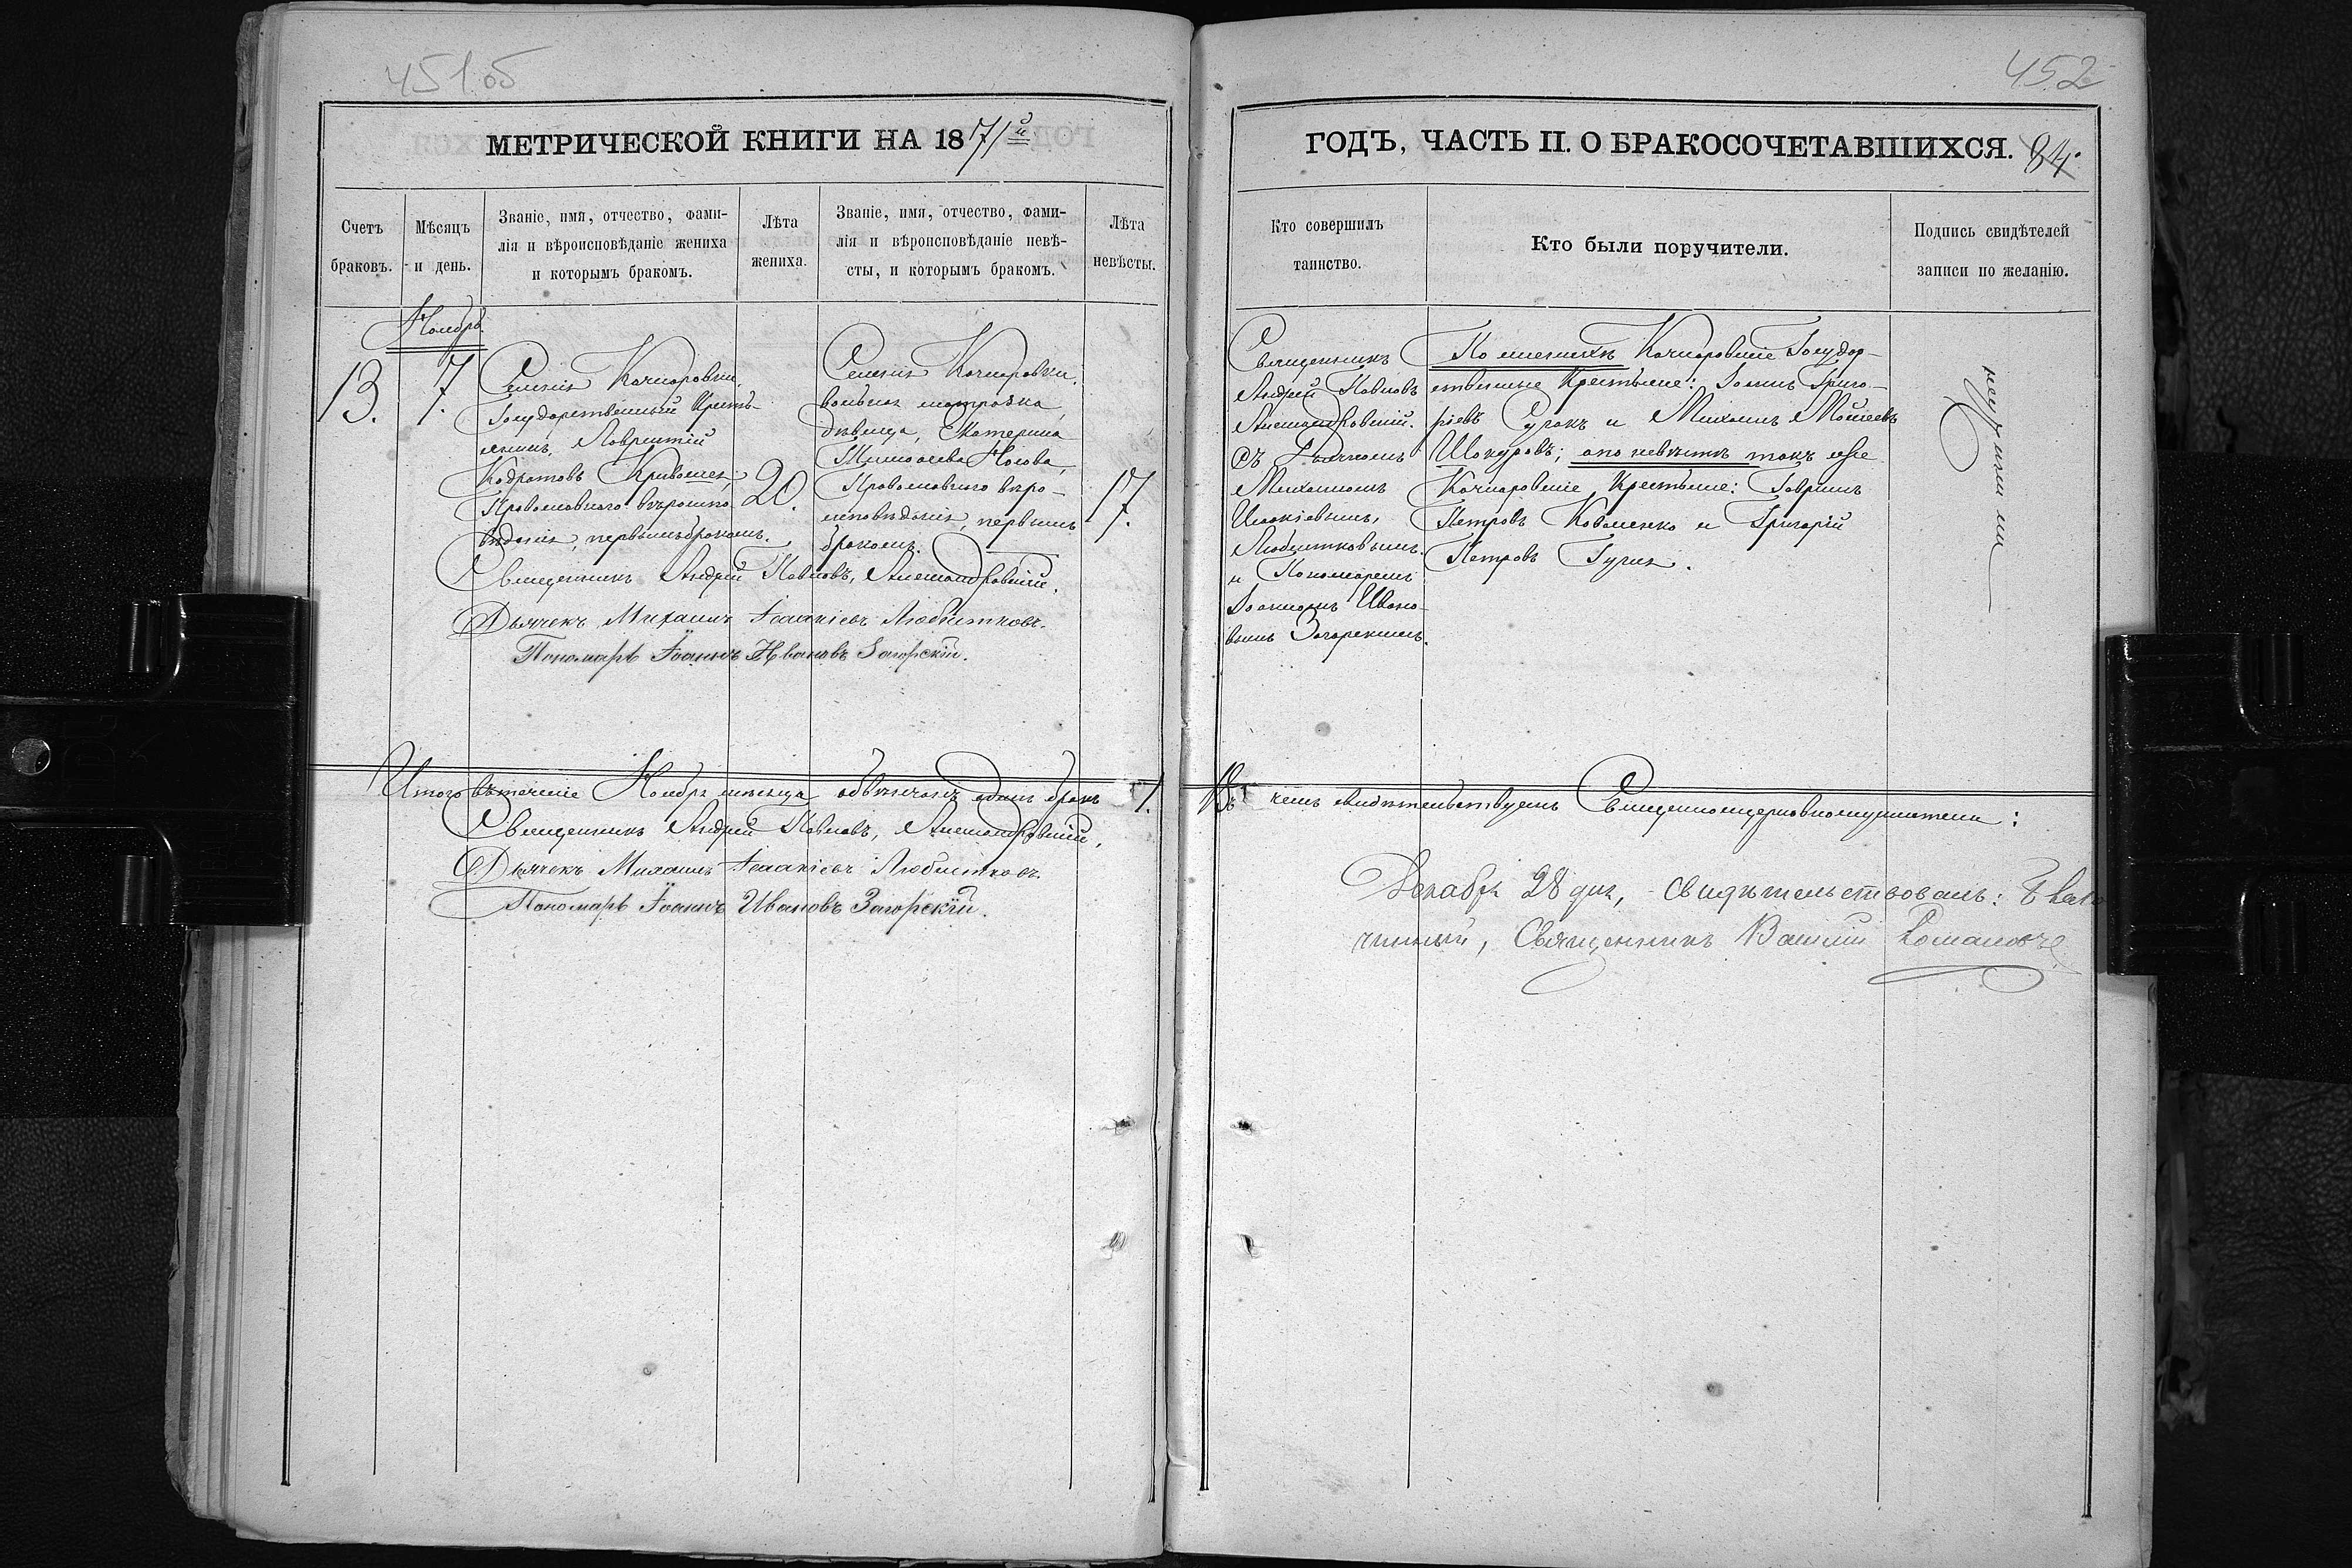 451об
МЕТРИЧЕСКОЙ КНИГИ НА 1871й
Счетъ браковъ.
Мѣсяцъ и день.
Званіе, имя, отчество, фами-
лія и вѣроисповѣданіе жениха
и которымъ бракомъ.
Лѣта жениха.
Званіе, имя, отчество, фами-
лія и вѣроисповѣданіе невѣ-
сты, и которымъ бракомъ.
Лѣта невѣсты.
Ноябрь.
13.
7.
Селенія
Государственный Кресть-
янинъ, Лаврентій
Кодратовъ
Православнаго вѣроиспо-
вѣданія, первымъ бракомъ.
20.
Селенія
дѣвица, Екатерина
Носова,
Православнаго вѣро-
исповѣданія, первымъ
бракомъ.
17.
Священникъ Андрей Павловъ, Александровскій.
Дьячекъ Михаилъ Іоакіевъ Любитковъ.
Пономарь Іоаннъ Ивановъ Загорскій.
Итого въ теченіе Ноября мѣсяца обвѣнчанъ одинъ бракъ 1.
Священникъ Андрей Павловъ, Александровскій,
Дьячекъ Михаилъ Іоакіевъ Любитковъ.
Пономарь Іоаннъ Ивановъ Загорскій.
452
ГОДЪ, ЧАСТЬ II. О БРАКОСОЧЕТАВШИХСЯ.
84.
Кто совершилъ таинство.
Кто были поручители.
Подпись свидѣтелей
записи по желанію.
Священникъ
Андрей Павловъ
Александровскій.
съ Дьячкомъ
Михаиломъ
Любитковымъ.
и Пономаремъ
Іоанномъ Ивано-
вымъ Загорскимъ.
По женихѣ Государ-
ственные Крестьяне: Григо-
ріевъ и Михаилъ Моисеевъ
а по невѣстѣ такъ же
Крестьяне: Гавріилъ
Петровъ Коваленко и Григорій
Петровъ
Въ чемъ свидѣтельствуемъ Священноцерковнослужители:
Декабря 28 дня, свидѣтельствовалъ: Благо
чинный, Священникъ Василій